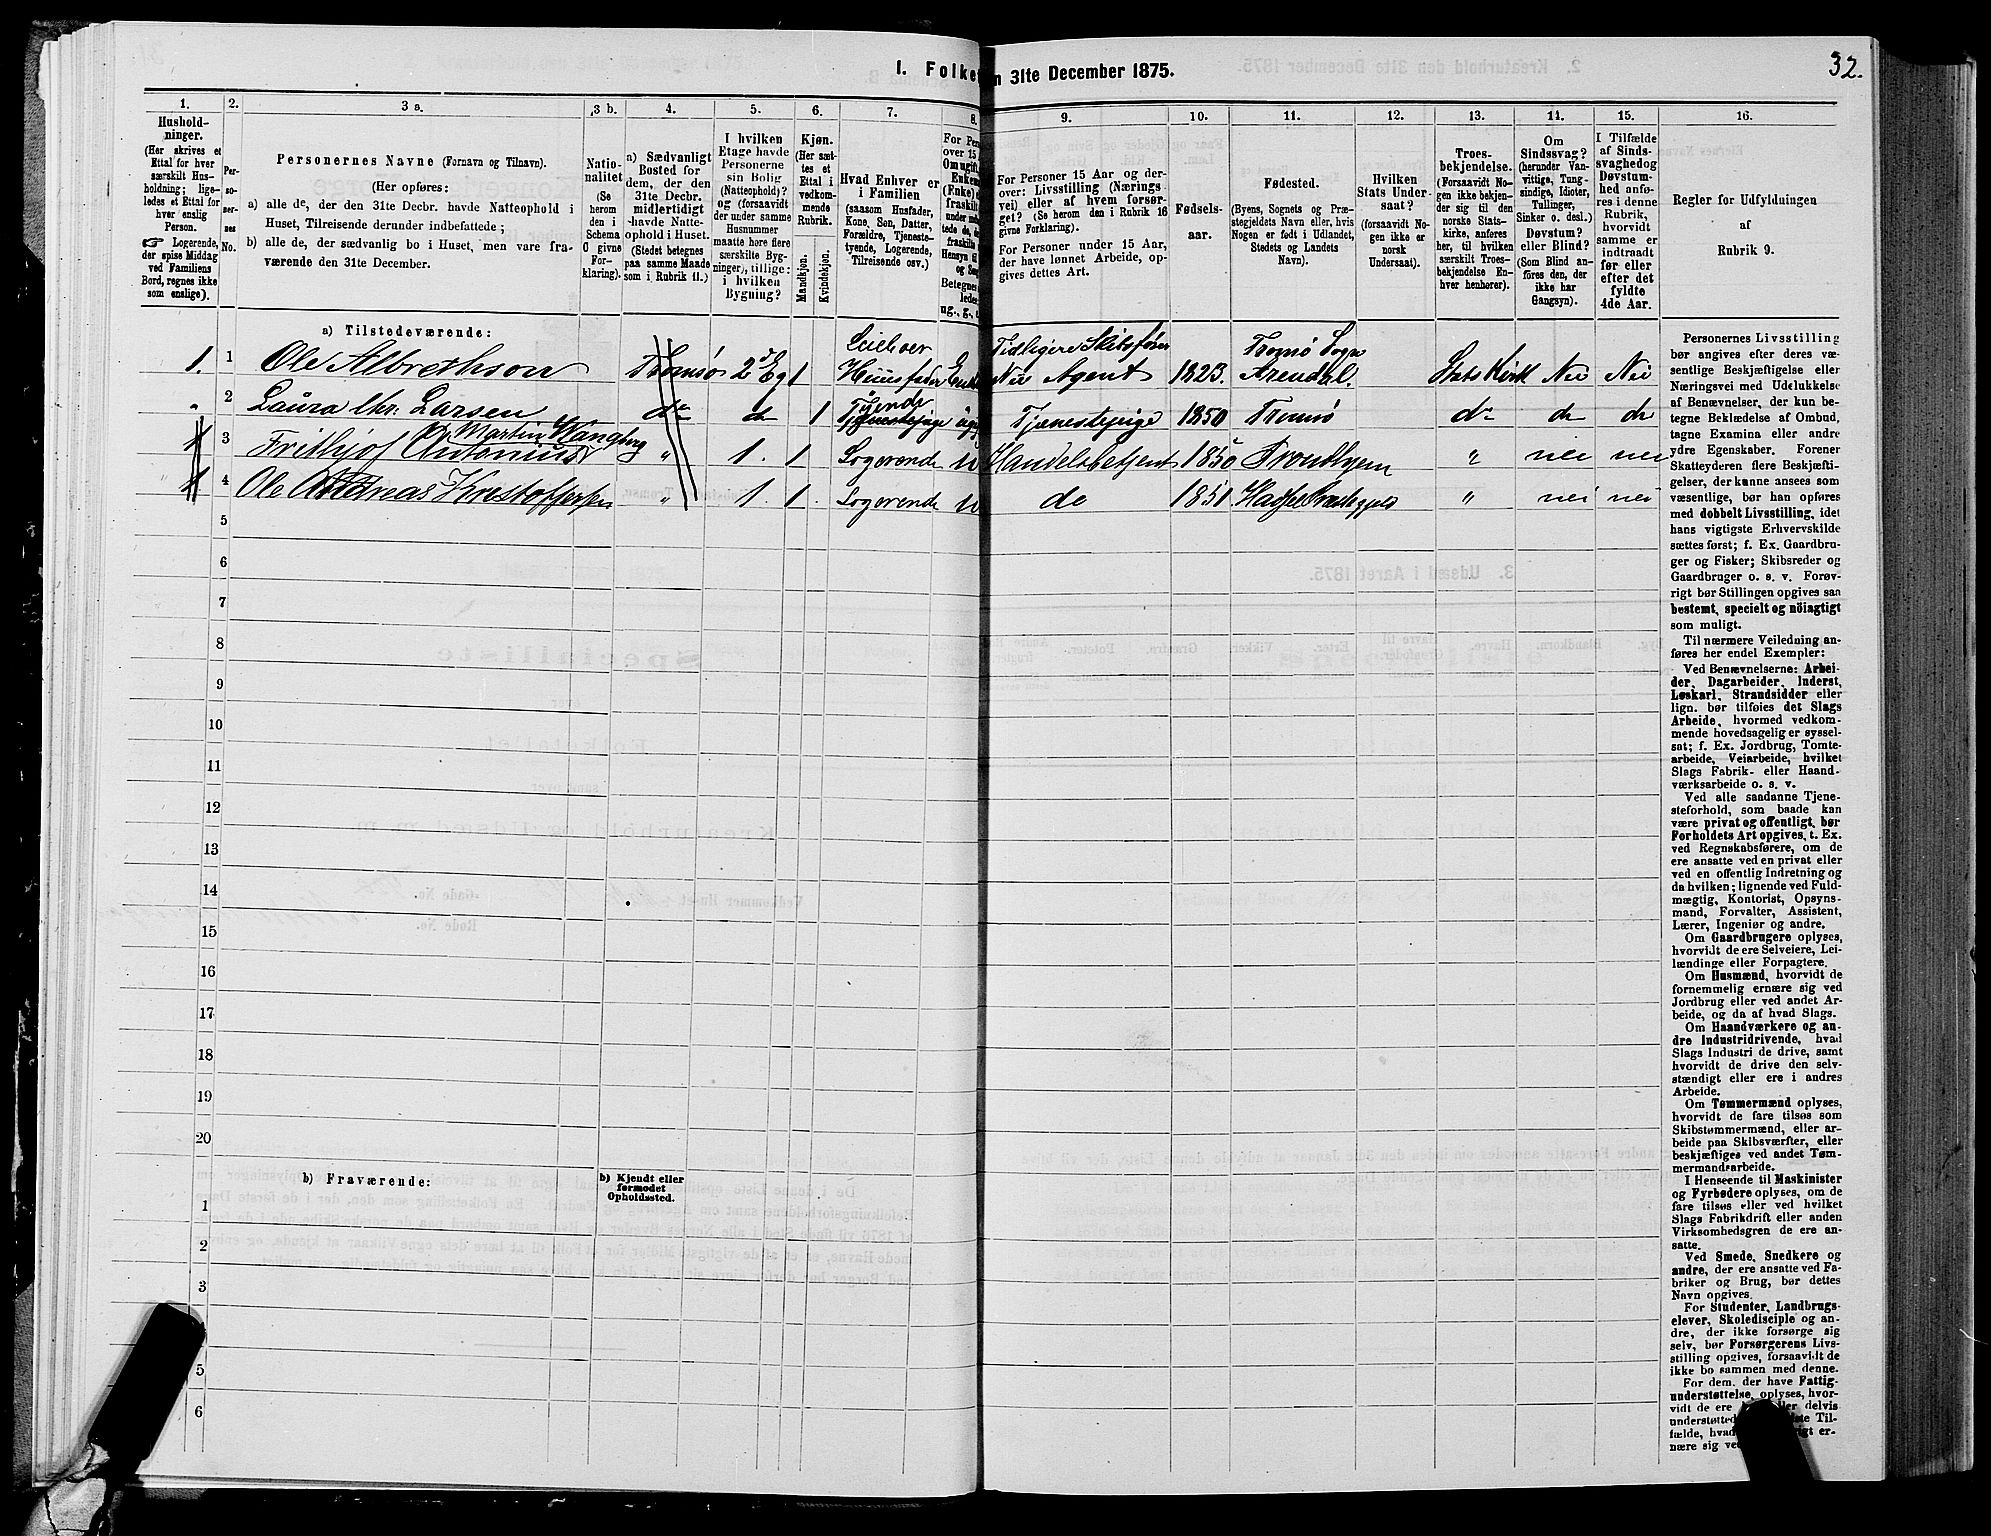 32.
1. Folke
n 31te December 1875.
1. 2. 3 a. 3 b. 4. 5. 6. 7. 8. 9. 10. 11. 12. 13. 14. 15. 16.
Hushold-
ninger.
(Her skrives et
Ettal for hver
særskilt Hus-
holdning; lige-
ledes et Ettal for
hver enslig
Person.
Logerende,
der spise Middag
ved Familiens
Bord, regnes ikke
som enslige).
Per-
so-
ner-
nes
No.
Personernes Navne (Fornavn og Tilnavn).
(Her opføres:
a) alle de, der den 31te Decbr. havde Natteophold i
Huset, Tilreisende derunder indbefattede;
b) alle de, der sædvanlig bo i Huset, men vare fra-
værende den 31te December.
Natio-
nalitet
(Se
herom
den i
Schema
O givne
For-
klaring).
a) Sædvanligt
Bosted for
dem, der den
31te Decbr.
midlertidigt
havde Natte-
ophold i Huset.
(Stedet betegnes
paa samme Maade
som i Rubrik 11.)
I hvilken
Etage havde
Personerne
sin Bolig
(Natteophold)?
og (forsaavidt
der under samme
Husnummer
maatte høre flere
særskilte Byg-
ninger), tillige:
i hvilken
Bygning?
Kjøn.
(Her sæt-
tes et
Ettal i
vedkom-
mende
Rubrik.
Mandkjøn.
Kvindekjøn.
Hvad Enhver er
i Familien
(saasom Husfader,
Kone, Søn, Datter,
Forældre, Tjeneste-
tyende, Logerende,
Tilreisende osv.)
For Per
over 15
Om ugift
Enkem
(Enke)
fraskilt
Hensyn til
Betegnes
ledes
ug., g., e
For Personer 15 Aar og der-
over: Livsstilling (Nærings
vei) eller af hvem forsør-
get? (Se herom den i Rubrik 16
givne Forklaring).
For Personer under 15 Aar,
der have lønnet Arbeide, op-
gives dettes Art.
Fødsels-
aar.
Fødested.
(Byens, Sognets og Præ-
stegjeldets Navn eller, hvis
Nogen er født i Udlandet,
Stedets og Landets
Navn).
Hvilken
Stats Under-
saat?
(forsaavidt No-
gen ikke er
norsk
Undersaat).
Troes-
bekjendelse.
(Forsaavidt No-
gen ikke bekjen-
der sig til den
norske Stats-
kirke, anføres
her, til hvilken
særskilt Troes-
bekjendelse En-
hver henhører).
Om
Sindssvag?
(herunder Van-
vittige, Tung-
sindige, Idioter,
Tullinger,
Sinker o. desl.)
Døvstum?
eller Blind?
(Som Blind an-
føres den, der
ikke har
Gangsyn).
I Tilfælde
af Sinds-
svaghed og
Døvstum-
hed anfø-
res i denne
Rubrik,
hvorvidt
samme er
indtraadt
før eller
efter det
fyldte
4de Aar.
Regler for Udfyldningen
af
Rubrik 9.
a) Tilstedeværende:
1. 1 Ole Albrethson Tromsø 2d Eg 1 Leiehver Huusfader Enke Tidligere Skibsfører Nu Agent 1823. Tromsø Sogn Arendal. Stats Kirk Nei Nei
2 Laura Chr. Larsen do d 1 Tyende Tjenestepige ugift Tjenestepige 1850 Tromsø do do do
3 Frithjof Antonius Martin Wangberg " 1. 1 Logerende u Handelsbetjent 1850 Trondhjem " nei nei
4 Ole Andreas Kristoffersen " 1. 1. Logerende u do 1851. " nei nei
5
6
7
8
9
10
11
12
13
14
15
16
17
18
19
20
b) Fraværende:
b) Kjendt eller
formodet
Opholdssted.
1
2
3
5
6
Personernes Livsstilling
bør angives efter deres væ-
sentlige Beskjæftigelse eller
Næringsvei med Udelukkelse
af Benævnelser, der kun be-
tegne Beklædelse af Ombud,
tagne Examina eller andre
ydre Egenskaber. Forener
Skatteyderen flere Beskjæfti-
gelser, der kunne ansees som
væsentlige, bør han opføres
med dobbelt Livsstilling, idet
hans vigtigste Erhvervskilde
sættes først; f. Ex. Gaardbru-
ger og Fisker; Skibsreder og
Gaardbruger o. s. v. Forøv-
rigt bør Stillingen opgives saa
bestemt, specielt og nöiagtigt
som muligt.
Til nærmere Veiledning an-
føres her endel Exempler:
Ved Benævnelserne: Arbei-
der, Dagarbeider, Inderst,
Løskarl, Strandsidder eller
lign. bør tilføies det Slags
Arbeide, hvormed vedkom-
mende hovedsagelig er syssel-
sat; f. Ex. Jordbrug, Tomte-
arbeide, Veiarbeide, hvilket
Slags Fabrik- eller Haand-
værksarbeide o. s. v.
Ved alle saadanne Tjene-
steforhold, som baade kan
være privat og offentligt, bør
Forholdets Art opgives, t. Ex.
ved Regnskabsførere, om de
ere ansatte ved en privat eller
ved en offentlig Indretning og
da hvilken; lignende ved Fuld-
mægtig, Kontorist, Opsyns-
mand, Forvalter, Assistent,
Lærer, Ingeniør og andre.
Om Gaardbrugere oplyses,
hvorvidt de ere Selveiere, Lei-
lændinge eller Forpagtere.
Om Husmænd, hvorvidt de
fornemmelig ernære sig ved
Jordbrug eller ved andet Ar-
beide, og da af hvad Slags.
Om Haandværkere og an-
dre Industridrivende, hvad
Slags Industri de drive, samt
hvorvidt de drive den selv-
stændigt eller ere i andres
Arbeide.
Om Tømmermænd oplyses,
hvorvidt de fare tilsøs som
Skibstømmermænd, eller ar-
beide paa Skibsværfter, eller
beskjæftiges ved andet Tøm-
mermandsarbeide.
I Henseende til Maskinister
og Fyrbødere oplyses, om de
fare tilsøs eller ved hvilket
Slags Fabrikdrift eller anden
Virksomhedsgren de ere an-
satte.
Ved Smede, Snedkere og
andre, der ere ansatte ved Fa-
briker og Brug, bør dettes
Navn opgives.
For Studenter, Landbrugs-
elever, Skoledisciple og an-
dre, der ikke forsørge sig
selv, bør Forsørgerens Livs-
stilling opgives, forsaavidt de
ikke bo sammen med denne.
For dem, der have Fattig-
understøttelse, oplyses, hvor-
vidt de ere
delvis
understøtte
Til-
fælde, hvad
er-
nære sig ve